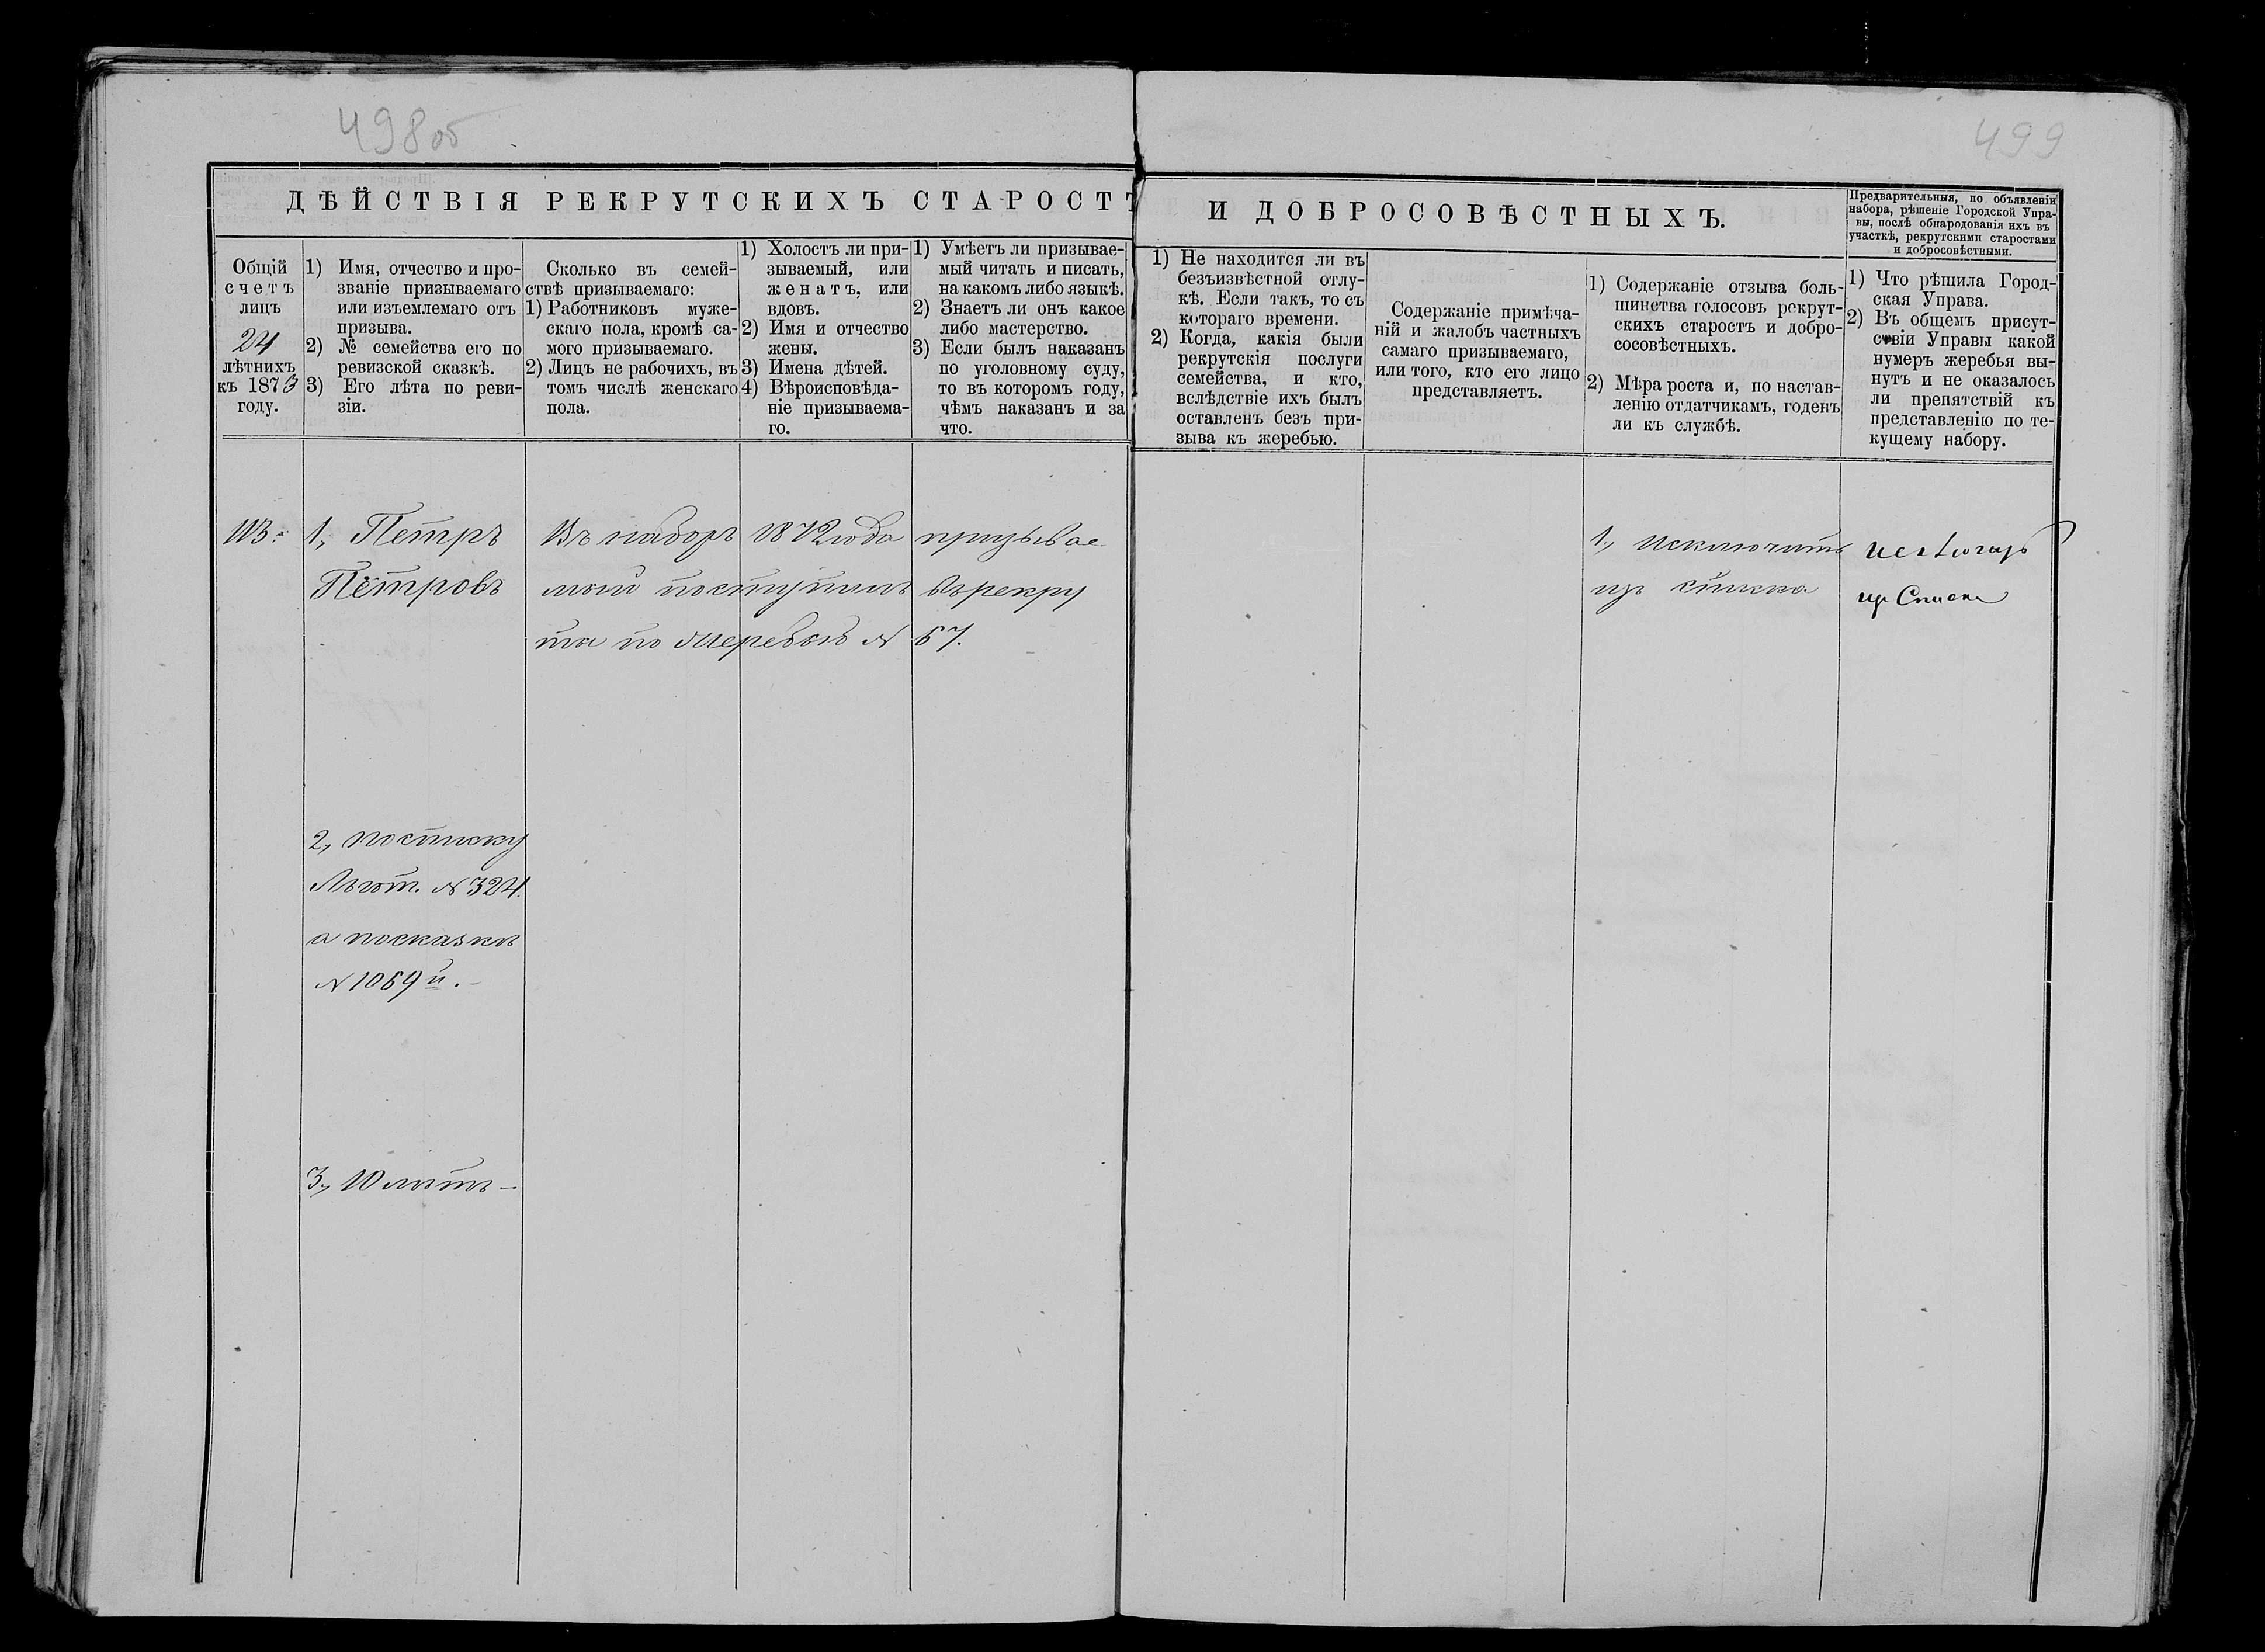 498об
499
ДѢЙСТВІЯ РЕКРУТСКИХЪ СТАРОСТЪ
И ДОБРОСОВѢСТНЫХЪ.
Общій
счетъ
лицъ
24
лѣтнихъ
къ 1873
году.
1) Имя, отчество и про-
званіе призываемаго
или изъемлемаго отъ
призыва.
2) № семейства его по
ревизской сказкѣ.
3) Его лѣта по реви-
зіи.
Сколько въ семей-
ствѣ призываемаго:
1) Работниковъ муже-
скаго пола, кромѣ са-
мого призываемаго.
2) Лицъ не рабочихъ, въ
томъ числѣ женскаго
пола.
1) Холостъ ли при-
зываемый, или
женатъ, или
вдовъ.
2) Имя и отчество
жены.
3) Имена дѣтей.
4) Вѣроисповѣда-
ніе призываема-
го.
1) Умѣетъ ли призывае-
мый читать и писать,
на какомъ либо языкѣ.
2) Знаетъ ли онъ какое
либо мастерство.
3) Если былъ наказанъ
по уголовному суду,
то въ которомъ году,
чѣмъ наказанъ и за
что.
1) Не находится ли въ
безъизвѣстной отлу-
кѣ. Если такъ, то съ
котораго времени.
2) Когда, какія были
рекрутскія послуги
семейства, и кто,
вслѣдствіе ихъ былъ
оставленъ безъ при-
зыва къ жеребью.
Содержаніе примѣча-
ній и жалобъ частныхъ
самаго призываемаго,
или того, кто его лицо
представляетъ.
1) Содержаніе отзыва боль-
шинства голосовъ рекрут-
скихъ старостъ и добро-
сосовѣстныхъ.
2) Мѣра роста и, по настав-
ленію отдатчикамъ, годенъ
ли къ службѣ.
Предварительныя, по объявленіи
набора, рѣшеніе Городской Упра-
вы, послѣ обнародованія ихъ въ
участкѣ, рекрутскими старостами
и добросовѣстными.
1) Что рѣшила Город-
ская Управа.
2) Въ общемъ присут-
ствіи Управы какой
нумеръ жеребья вы-
нутъ и не оказалось
ли препятствій къ
представленію по те-
кущему набору.
113.
1, Петръ
Петровъ
Въ наборъ 1872 года призывае
мый поступилъ въ рекру
ты по жеребью № 67.
1., исключить
изъ списка
исключить
изъ Списка
2, по списку
Льгот. № 324.
а по сказкѣ
№ 1069й.
3, 10 лѣтъ